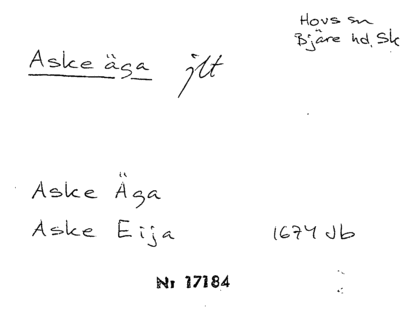 Hovs sn
Bjäre hd. Sk
Aske äga jlt
Aske Äga
Aske Eija 1674 Jb
Nr 17184